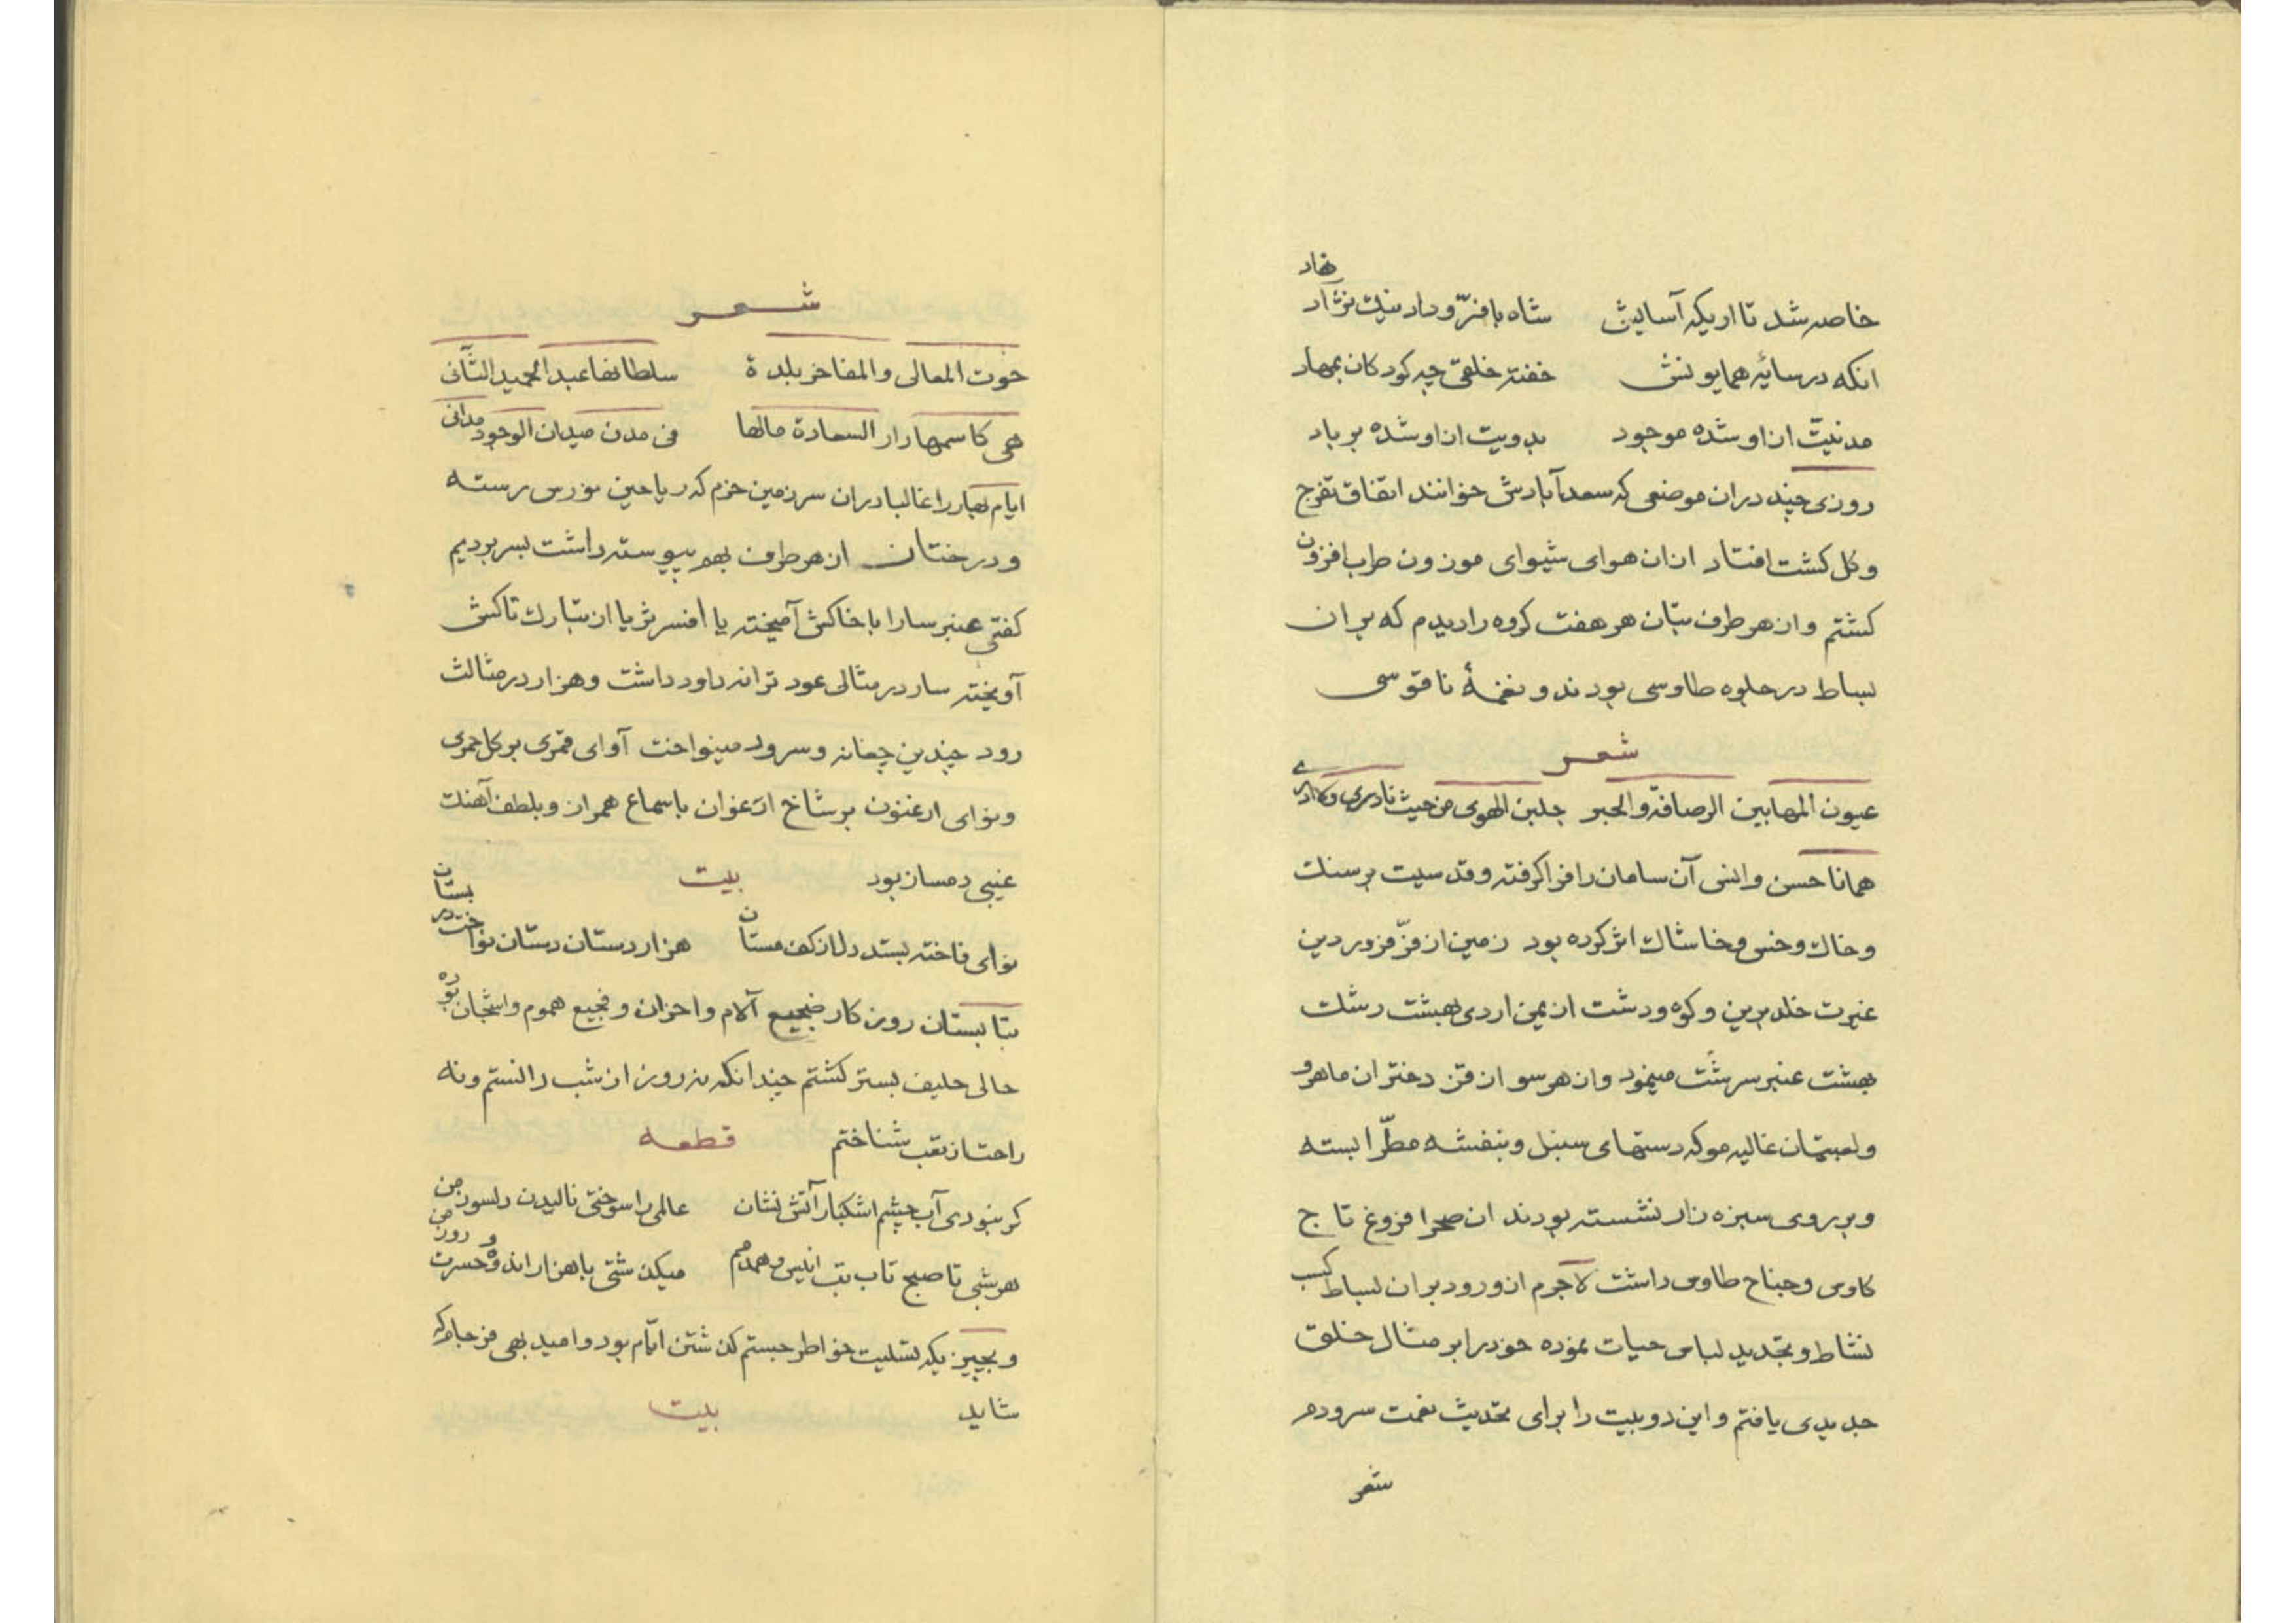 خاصه شد تا اریکه آسایش شاه با فرّ و داد نیك نژاد نهاد
انکه در سایهٔ همایونش خفته خلقی چه کودکان بمهاد
مدنیّت از او شده موجود بدویت از او شده بر باد
روزی چند در ان موضعی که سعدآبادش خوانند اتفاق تفرج
و کل کشت افتاد از ان هوای شیوای موزون طرب افزون
کشتم و از هر طرف بتان هر هفت کروه را دیدم که بر ان
بساط در جلوه طاوسی بودند و نغمهٔ ناقوسی
شعر
عیون المها بین الرصافة والجسر جلبن الهوی من حیث نادری ولا ادری
همانا حسن وانس آن سامان را فرا کرفته و قدسیت بر سنك
و خاك و خس و خاشاك اثر کرده بود زمین از فرّ فروردین
غیرت خلد برین و کوه و دشت از یمن اردی بهشت رشك
بهشت عنبر سرشت مینمود و از هر سو از فتن دختران ماهرو
و لعبتان غالیه مو که دستهای سنبل و بنفشه مطرّا بسته
و بر روی سبزه زار نشسته بودند ان صحرا فروغ تاج
کاوس و جناح طاوس داشت لاجرم از ورود بر ان بساط کسب
نشاط و تجدید لباس حیات نموده خود را بر مثال خلق
جدیدی یافتم و این دو بیت را برای تحدیث نعمت سرودم
شعر
شعر
حوت المعالی والمفاخر بلدة سلطانها عبد الحمید الثّانی
هی کاسمها دار السعادة مالها فی مدن میدان الوجود مدانی
ایام بهار را غالبا در ان سرزمین خرم که ریاحین نورس رسته
و درختان از هر طرف بهم پیوسته داشت بسر بردیم
کفتی عنبر سارا با خاکش آمیخته یا افسر ثریا از تبارك تاکش
آویخته سار در مثالی عود ترانه داود داشت و هزار در مثالث
رود چندین چغانه و سرود مینواخت آوای قمری بر کل حمری
و نوای ارغنون بر شاخ ارغوان باسماع همراز و بلطف آهنك
غیبی دمساز بود بیت
نوای فاخته بستد دل از کف مستان هزار دستان دستان نواخت در بستان
بتابستان روز کار ضجیع آلام و احزان و فجیع هموم و اشجان بوده
حالی حلیف بستر کشتم چندانکه نه روز از شب دانستم و نه
راحت از تعب شناختم قطعه
کر نبودی آب چشم اشکبار آتش نشان عالمی را سوختی نالیدن دلسوز من
هر شبی تا صبح تاب تب انیس و همدمم میکذشتی با هزار اندوه و حسرت روز من
و بچیزیکه تسلیت خواطر جستم کذشتن ایّام بود و امید بهی فرجام که
شاید بیت